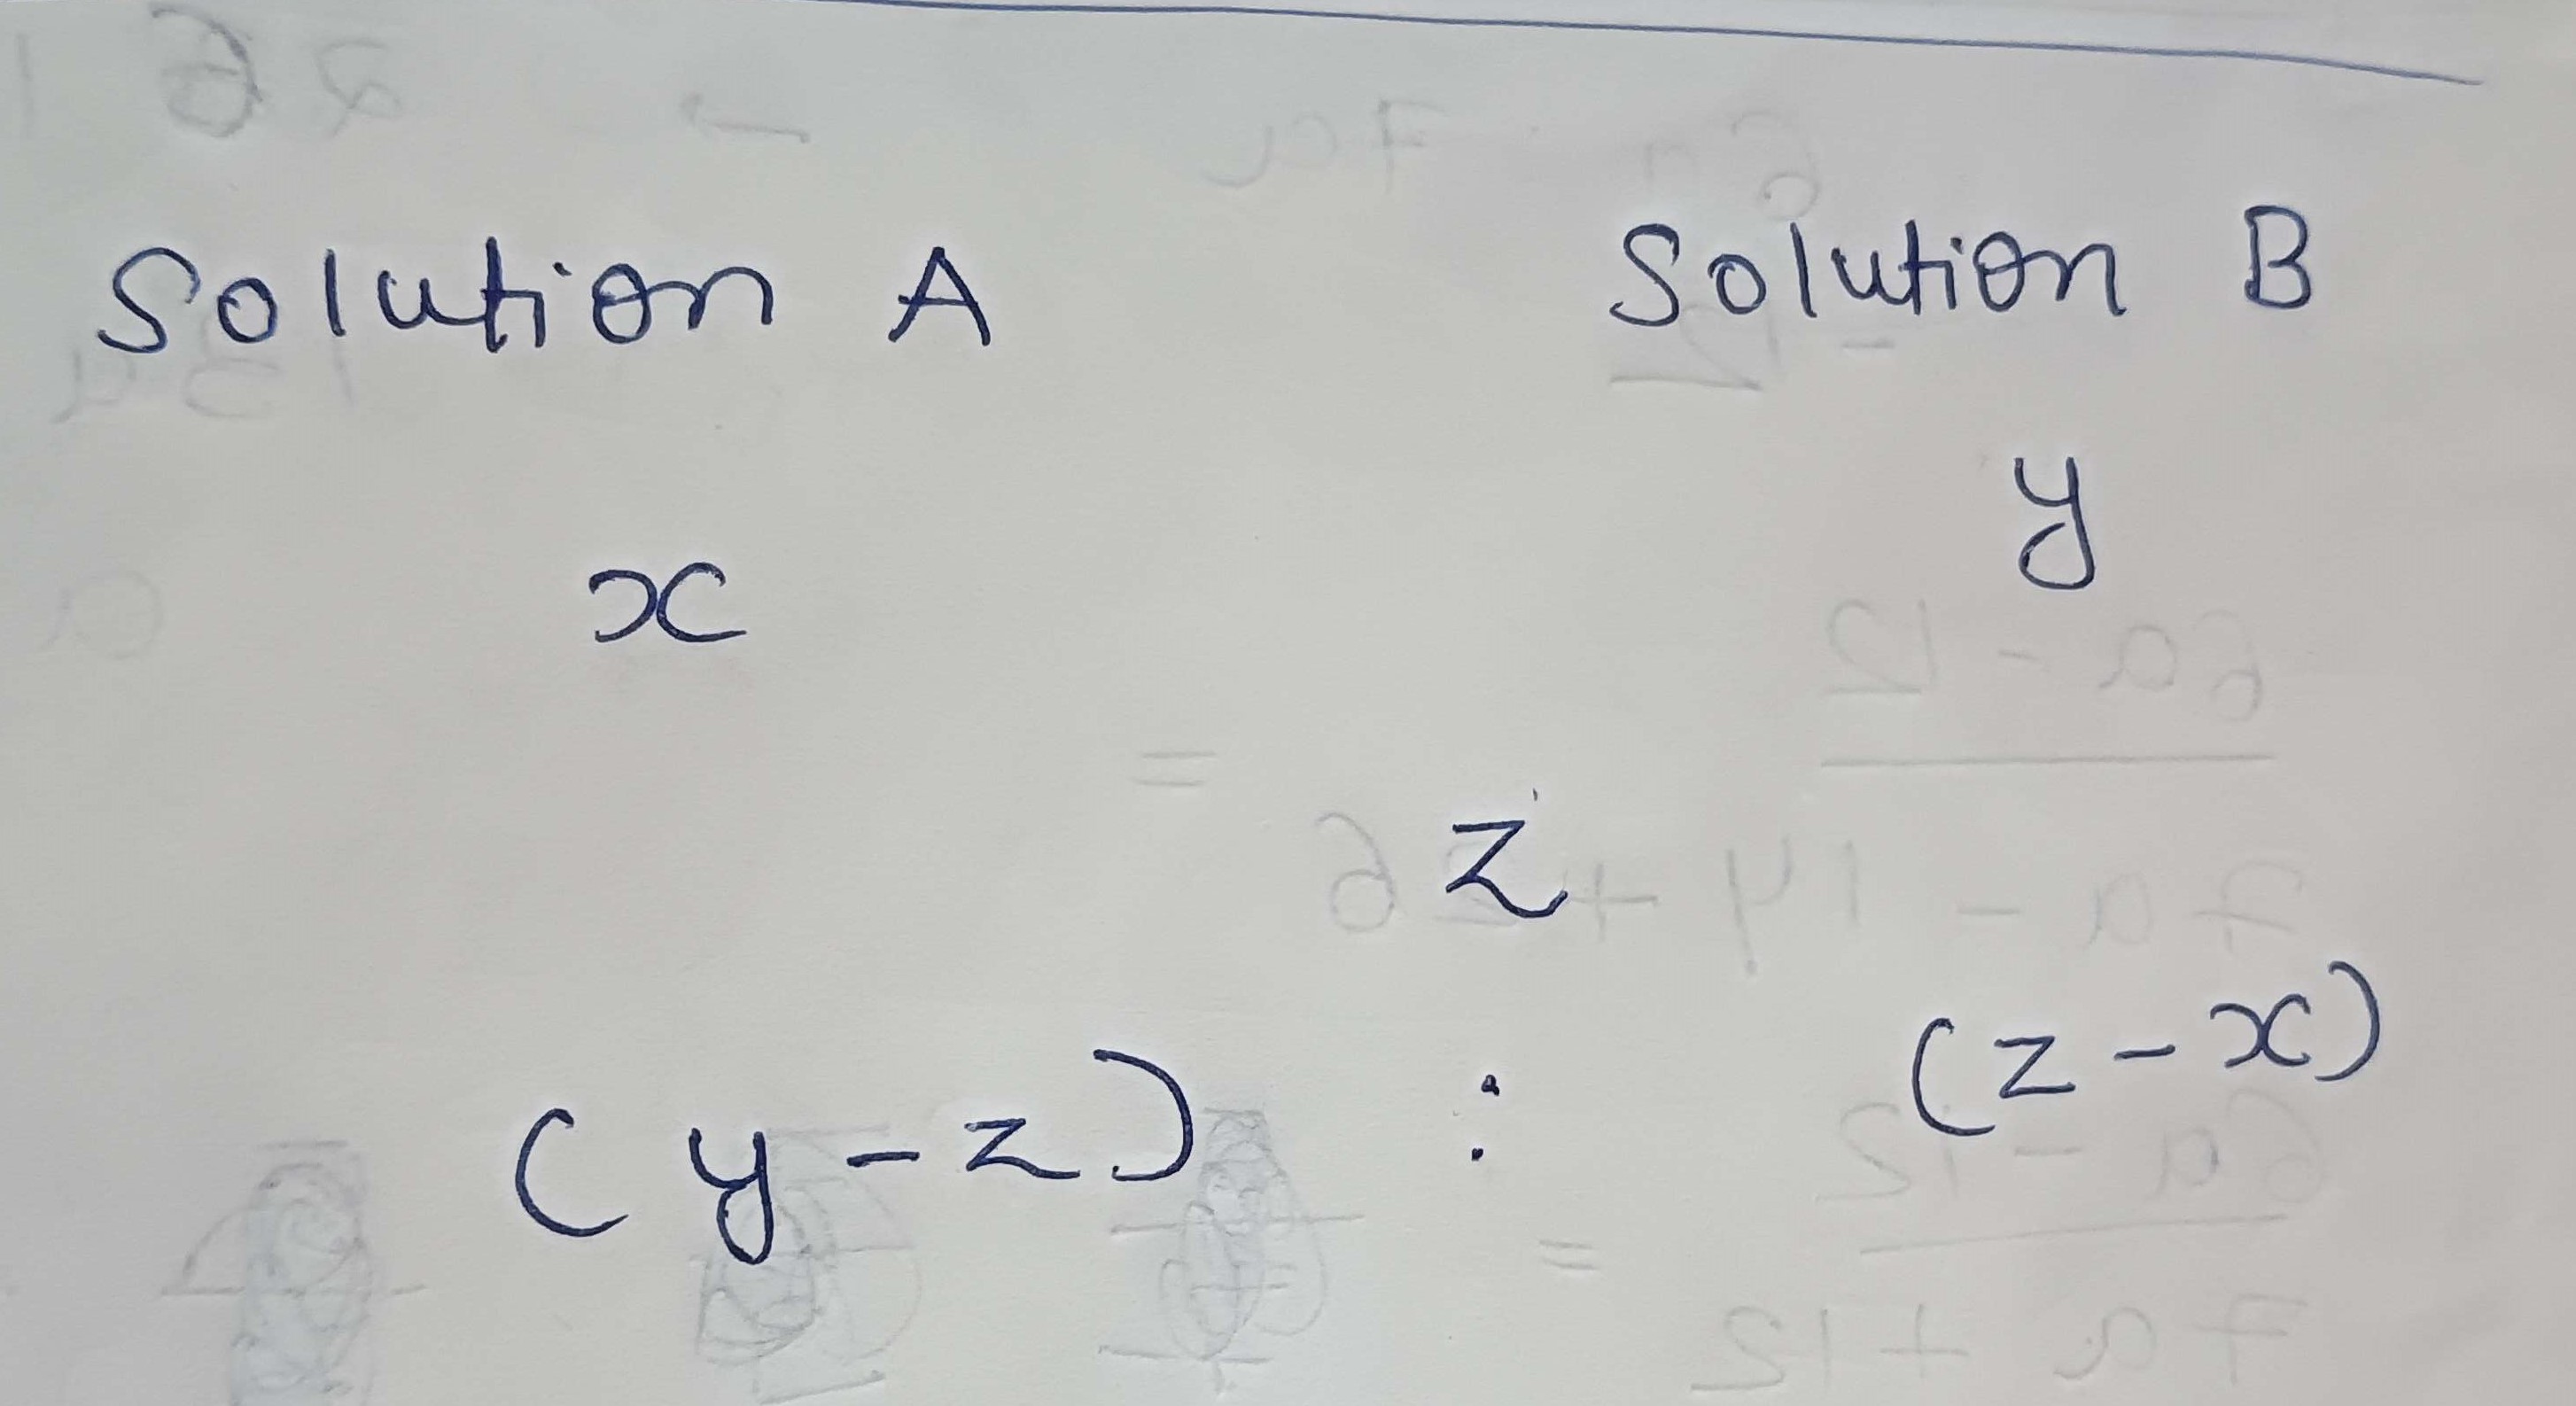 Solution A Solution B
x y
z
(y-z) : (z-x)